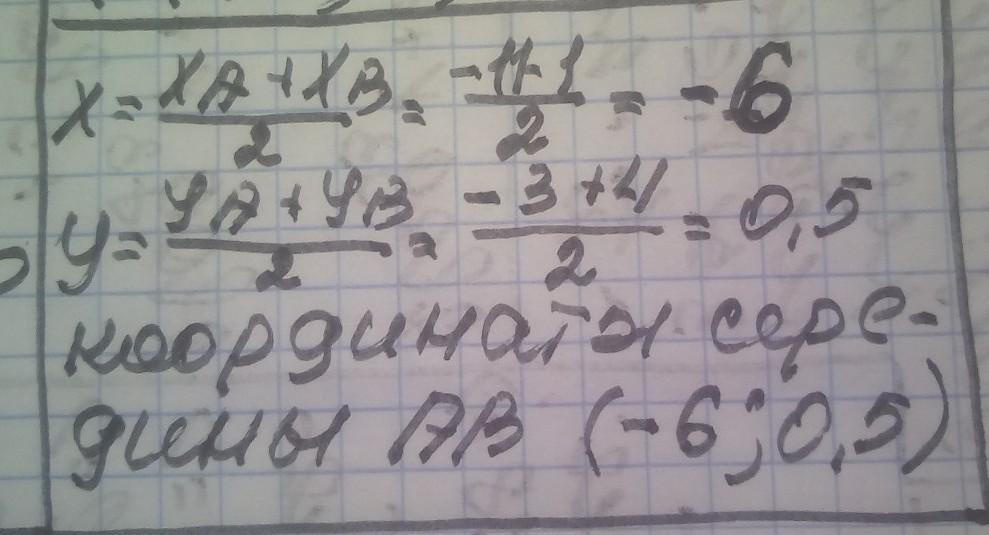 x = xA + xB / 2 = -11-1 / 2 = -6
y = yA + yB / 2 = -3+4 / 2 = 0,5
координаты сере-
дины AB (-6; 0,5)